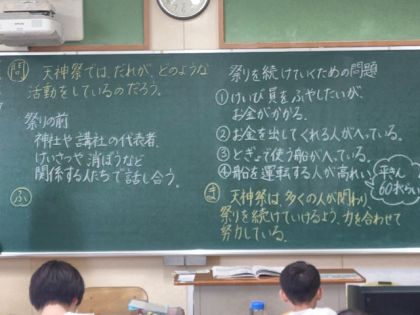 問 天神祭では、だれが、どのような
活動をしているのだろう。
祭りの前
神社や講社の代表者、
けいさつや消ぼうなど
関係する人たちで話し合う。
ふ
祭りを続けていくための問題
①けいび員をふやしたいが、
お金がかかる。
②お金を出してくれる人がへっている。
③とぎょで使う船がへっている。
④船を運転する人が高れい
平きん
60才くらい
ま 天神祭は、多くの人が関わり、
祭りを続けていけるよう、力を合わせて
努力している。